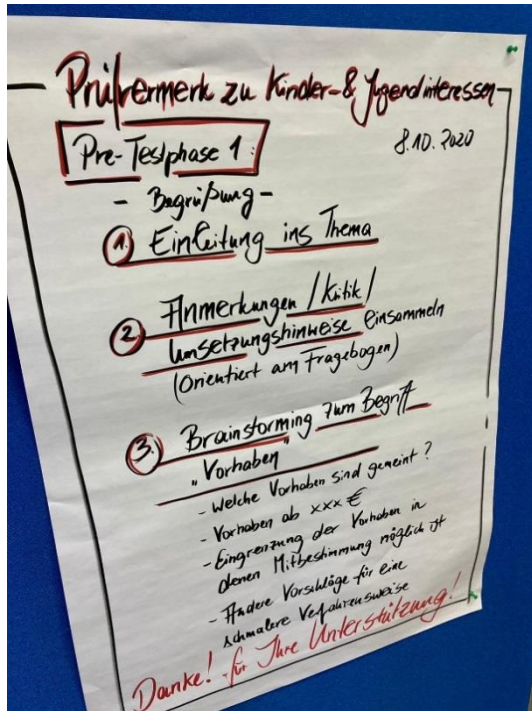 Prüfvermerk zu Kinder- & Jugendinteressen
Pre-Testphase 1:
8.10.2020
- Begrüßung -
1. Einleitung ins Thema
2. Anmerkungen / Kritik /
Umsetzungshinweise einsammeln
(Orientiert am Fragebogen)
3. Brainstorming zum Begriff
"Vorhaben"
- Welche Vorhaben sind gemeint?
- Vorhaben ab xxx €
- Eingrenzung der Vorhaben in
denen Mitbestimmung möglich ist
- Andere Vorschläge für eine
schmalere Verfahrensweise
Danke! für Ihre Unterstützung!